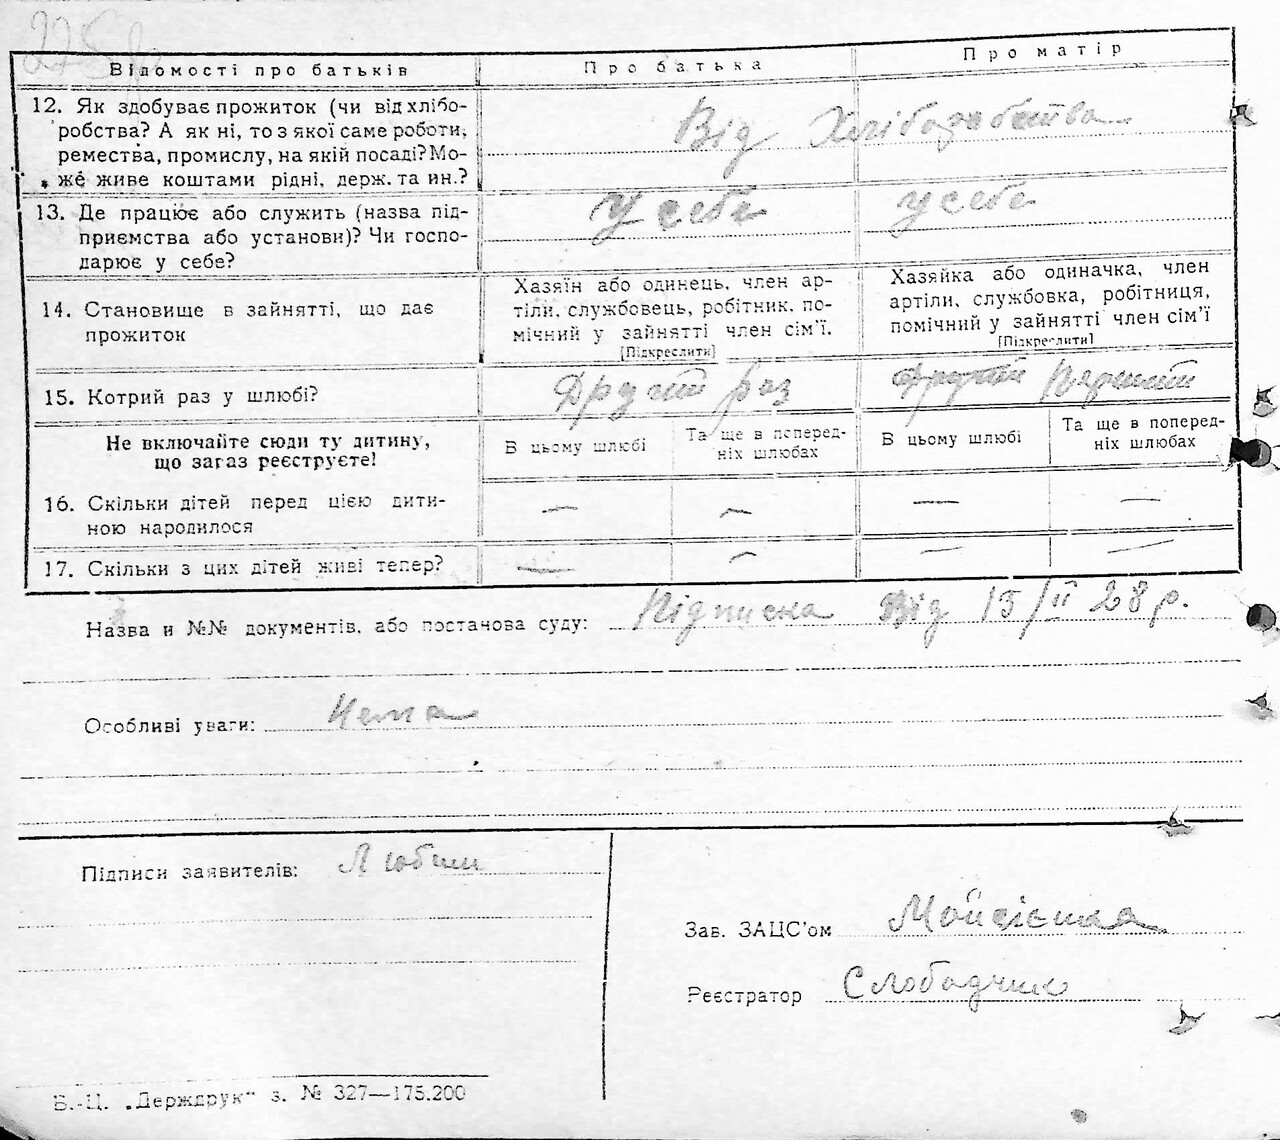 275
Відомості про батьків
Про батька
Про матір
12. Як здобуває прожиток (чи від хлібо-
робства? А як ні, то з якої саме роботи,
ремества, промислу, на якій посаді? Мо-
же живе коштами рідні, держ. та ин.?
Від Хліборобства
13. Де працює або служить (назва під-
приємства або установи)? Чи госпо-
дарює у себе?
У себе
У себе
14. Становище в зайнятті, що дає
прожиток
Хазяїн або одинець, член ар-
тіли, службовець, робітник, по-
мічний у зайнятті член сім'ї.
[Підкреслити]
Хазяйка або одиначка, член
артіли, службовка, робітниця,
помічний у зайнятті член сім'ї
[Підкреслити]
15. Котрий раз у шлюбі?
Другий раз
Другий Перший
Не включайте сюди ту дитину,
що загаз реєструєте!
В цьому шлюбі
Та ще в поперед-
ніх шлюбах
В цьому шлюбі
Та ще в поперед-
ніх шлюбах
16. Скільки дітей перед цією дити-
ною народилося
— — — —
17. Скільки з цих дітей живі тепер?
— — — —
Назва и №№ документів, або постанова суду: Підписка Від 15/II 28 р.
Особливі уваги: Нема
Підписи заявителів:
Зав. ЗАЦС'ом
Реєстратор Слободчик
Б.-Ц. „Держдрук" з. № 327—175.200